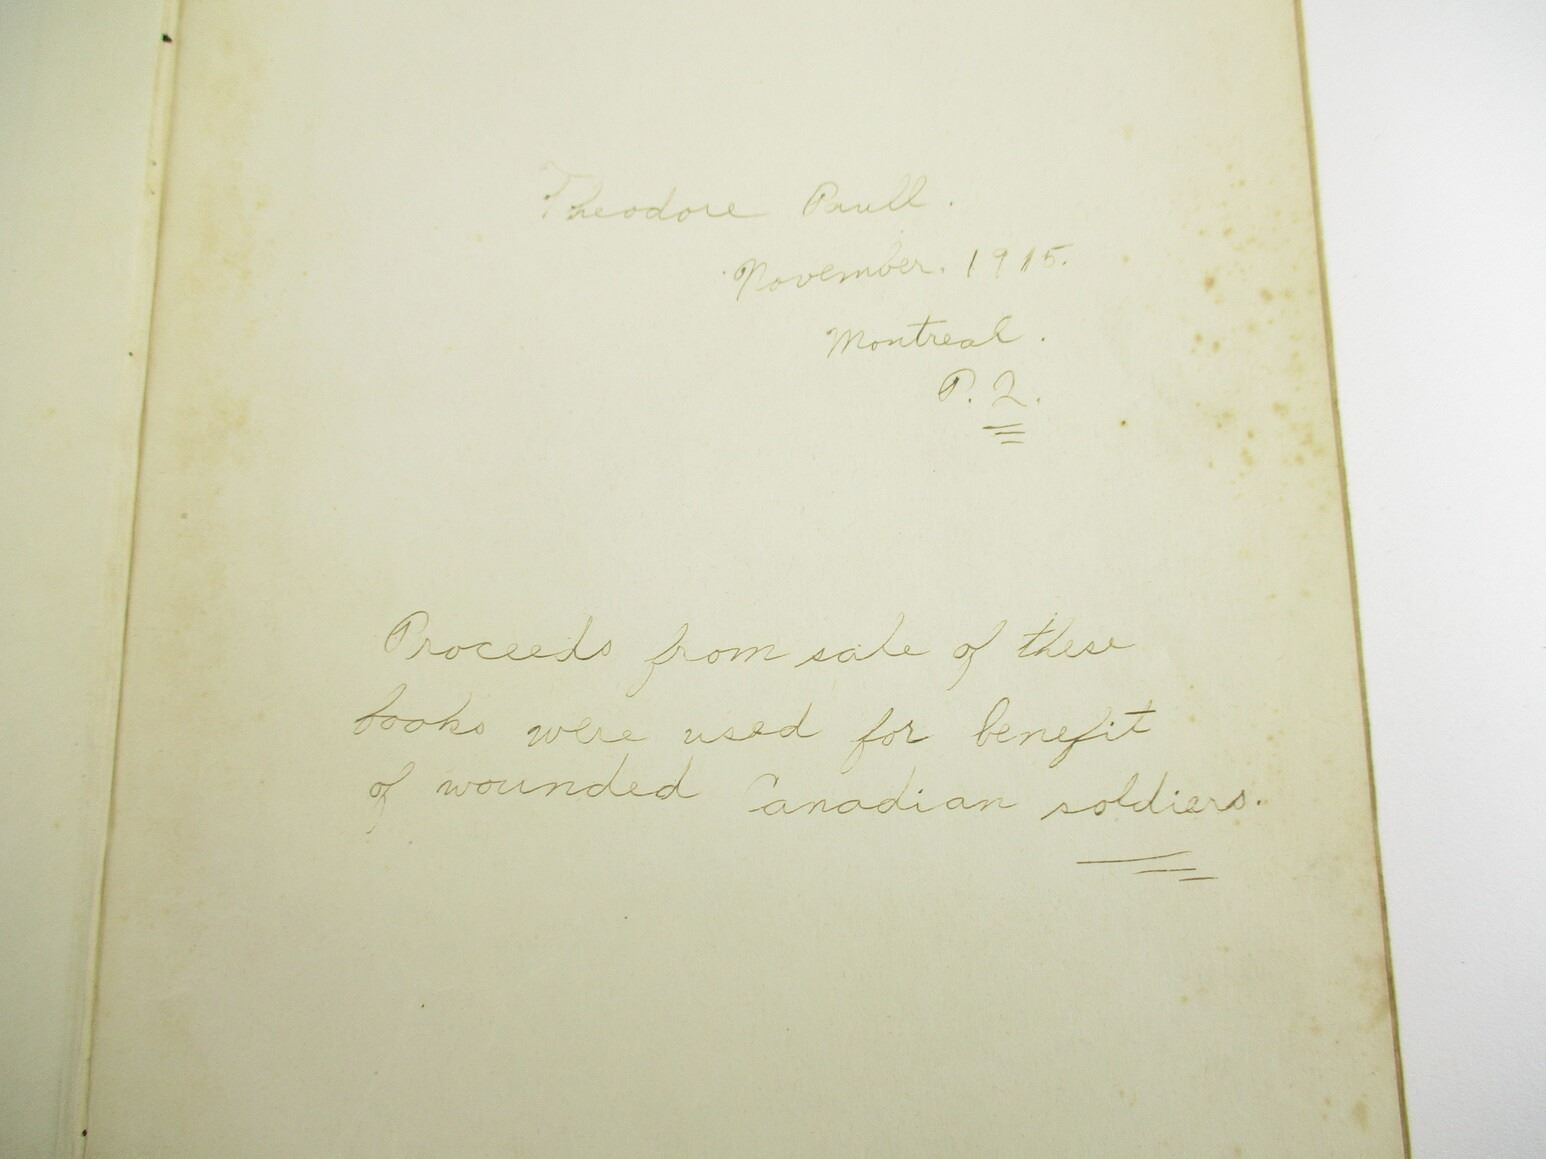 Theodore Paull.
November. 1915.
Montreal.
P. Q.
Proceeds from sale of these
books were used for benefit
of wounded Canadian soldiers.